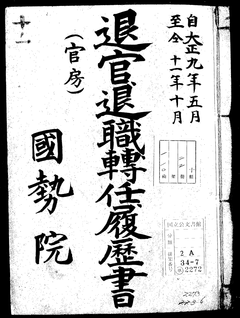 自大正九年五月
至仝十一年十月
退官退職轉任履歷書
(官房)
國勢院
十二
国立公文書館
2 A
34-7
2272